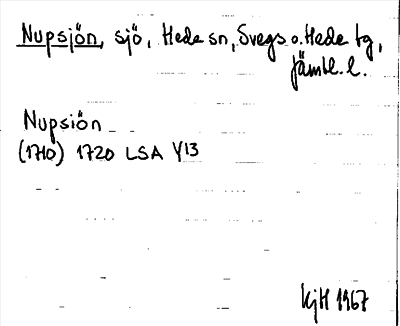 Nupsjön, sjö, Hede sn, Svegs o. Hede tg,
Jämtl. l.
Nupsiön
(1710) 1720 LSA Y13
KjH 1967